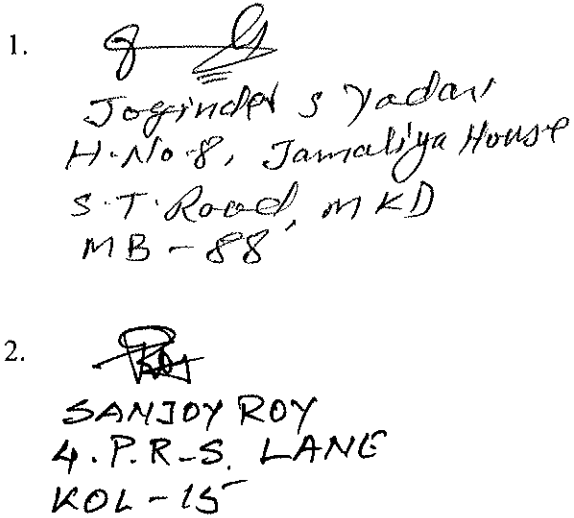 1.
Joginder S Yadav
H.No.8, Jamaliya House
S.T. Road, MKD
MB-88
2.
Roy
SANJOY ROY
4.P.R-S. LANE
KOL-15